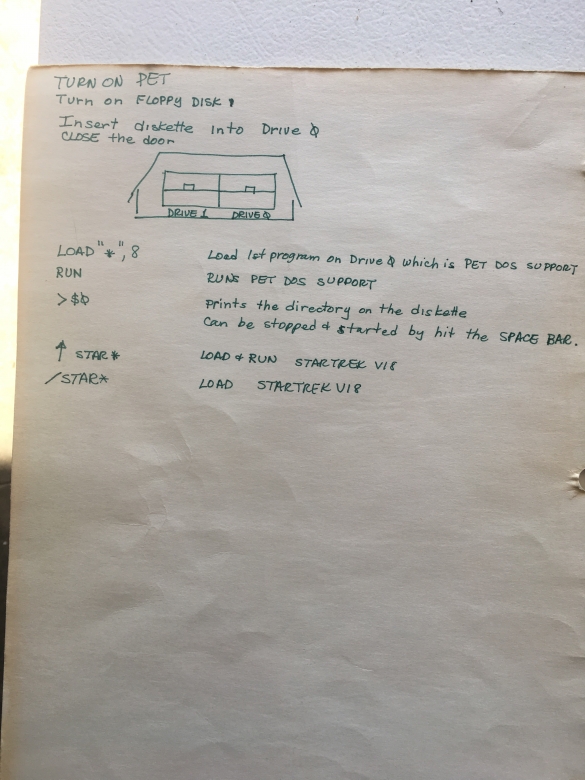 TURN ON PET
Turn on FLOPPY DISK
Insert diskette into Drive 0
CLOSE the door
DRIVE 1 DRIVE 0
LOAD "*",8 Load 1st program on Drive 0 which is PET DOS SUPPORT
RUN RUNS PET DOS SUPPORT
>$0 Prints the directory on the diskette
Can be stopped & started by hit the SPACE BAR.
↑ STAR* LOAD & RUN STARTREK V18
/STAR* LOAD STARTREK V18